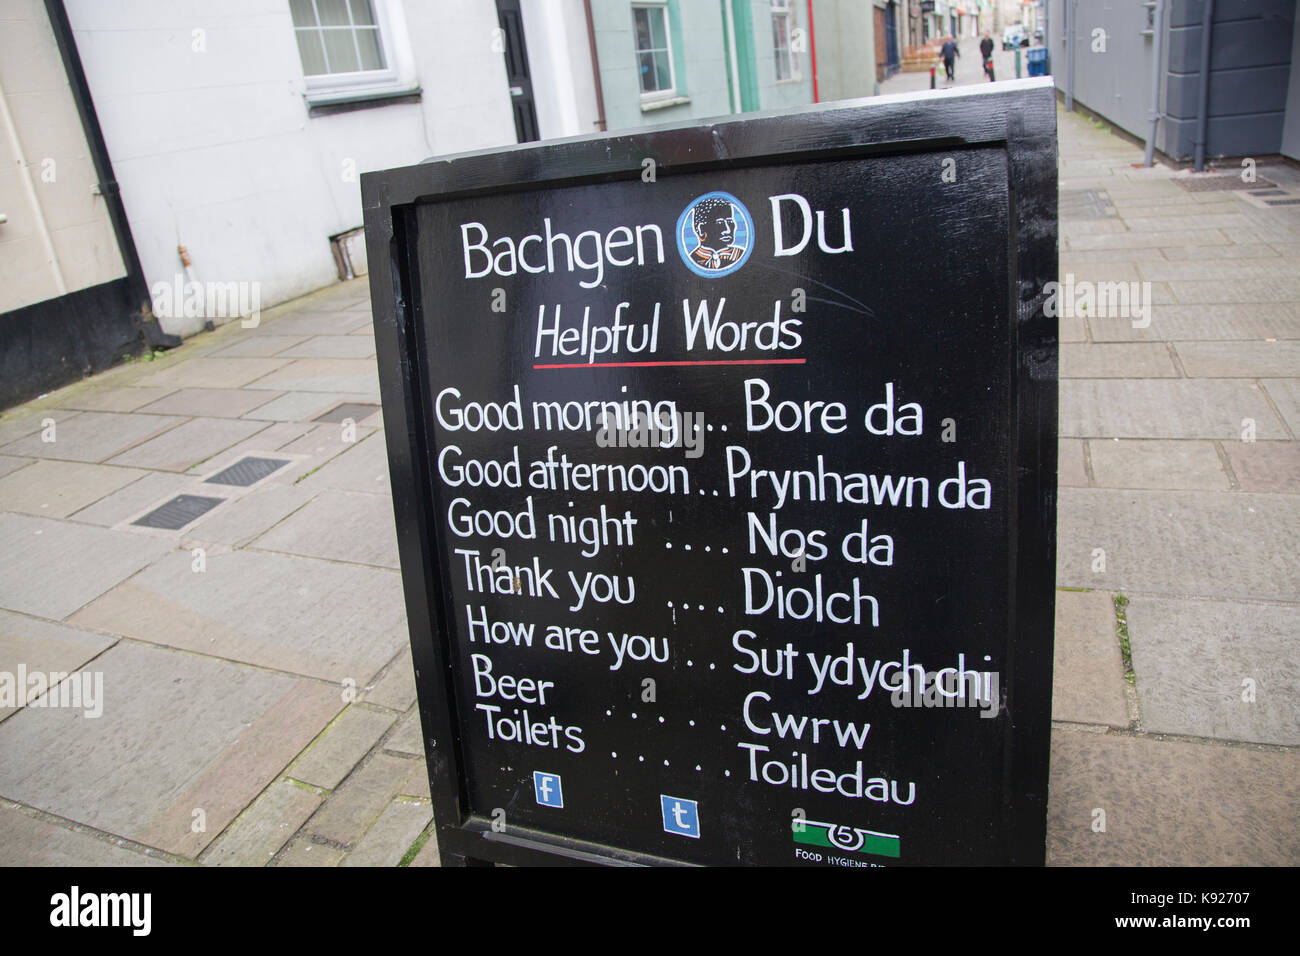 Bachgen Du
Helpful Words
Good morning ... Bore da
Good afternoon .. Prynhawn da
Good night .... Nos da
Thank you .... Diolch
How are you .. Sut ydych chi
Beer ..... Cwrw
Toilets ..... Toiledau
f t
5
FOOD HYGIENE
alamy
alamy stock photo
Image ID: K92707
www.alamy.com